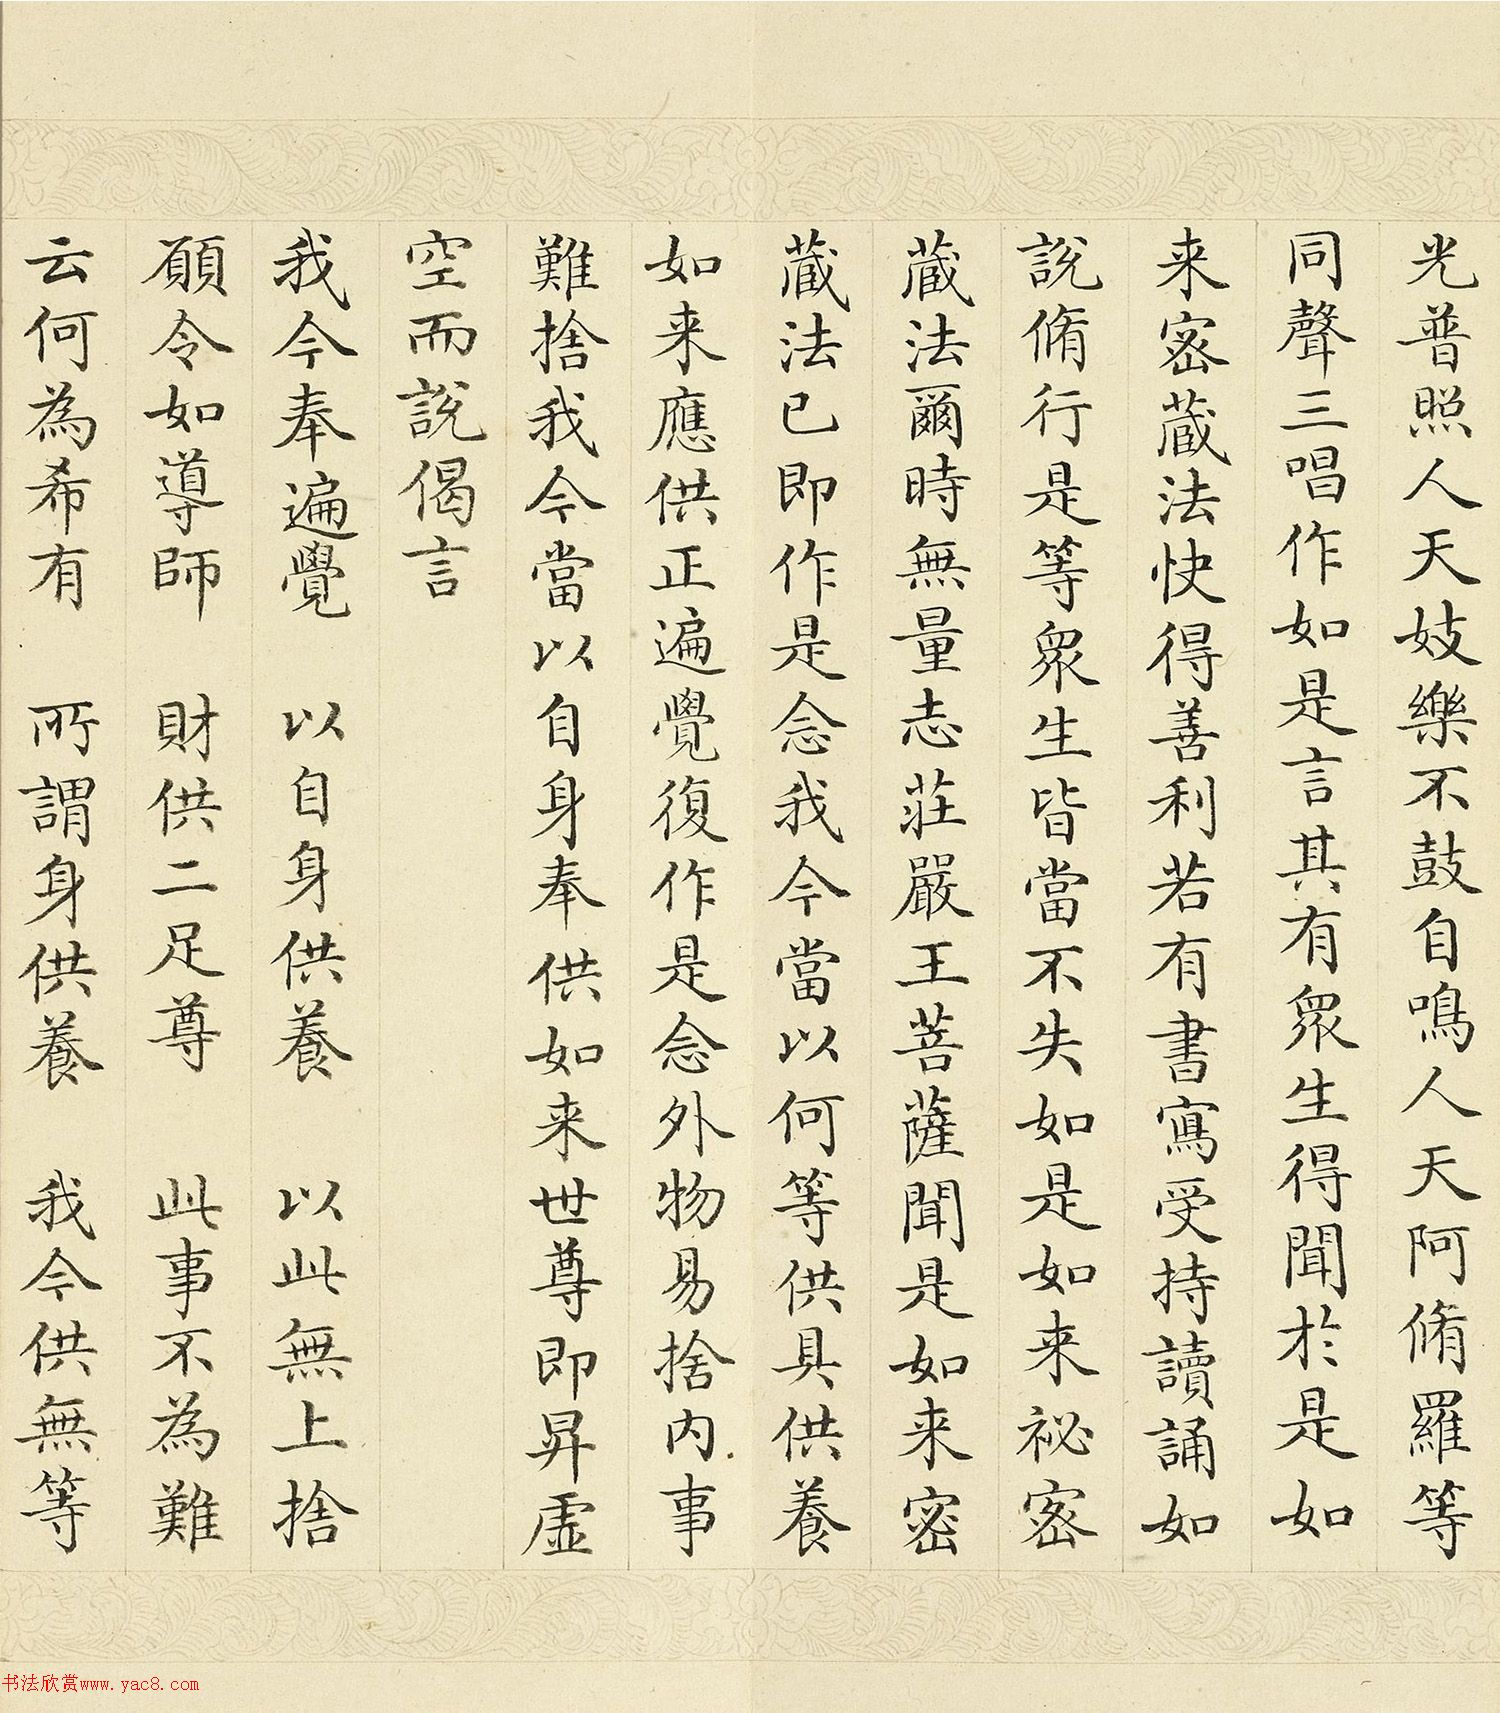 光普照人天妓樂不鼓自鳴人天阿脩羅等
同聲三唱作如是言其有眾生得聞於是如
来密蔵法快得善利若有書寫受持讀誦如
說脩行是等眾生皆當不失如是如来祕密
蔵法爾時無量志莊嚴王菩薩聞是如来密
蔵法已即作是念我今當以何等供具供養
如来應供正遍覺復作是念外物易捨內事
難捨我今當以自身奉供如来世尊即昇虛
空而說偈言
我今奉遍覺 以自身供養 以此無上捨
願令如導師 財供二足尊 此事不為難
云何為希有 所謂身供養 我今供無等
书法欣赏www.yac8.com